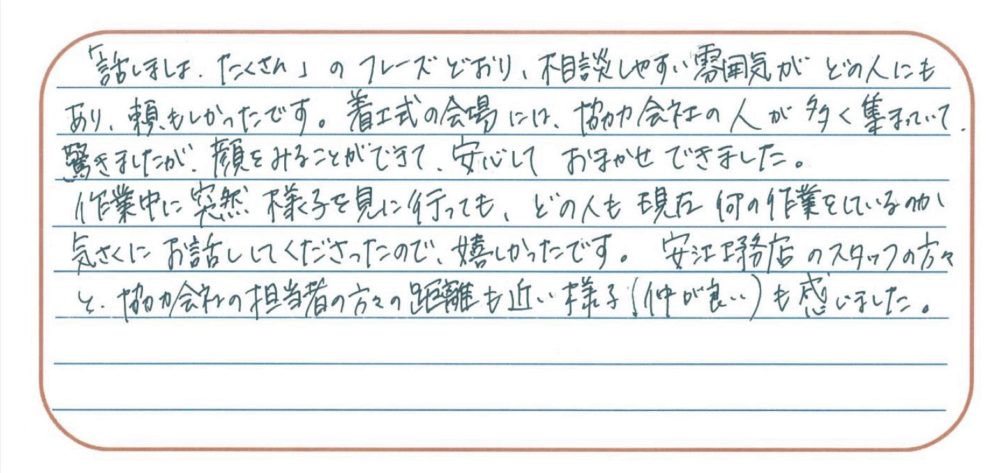 「話しましょ、たくさん」のフレーズどおり、相談しやすい雰囲気がどの人にも
あり、頼もしかったです。着工式の会場には、協力会社の人が多く集まっていて、
驚きましたが、顔をみることができて、安心しておまかせできました。
作業中に突然様子を見に行っても、どの人も現在何の作業をしているのか
気さくにお話ししてくださったので、嬉しかったです。安江工務店のスタッフの方々
と、協力会社の担当者の方々の距離も近い様子(仲が良い)も感じました。